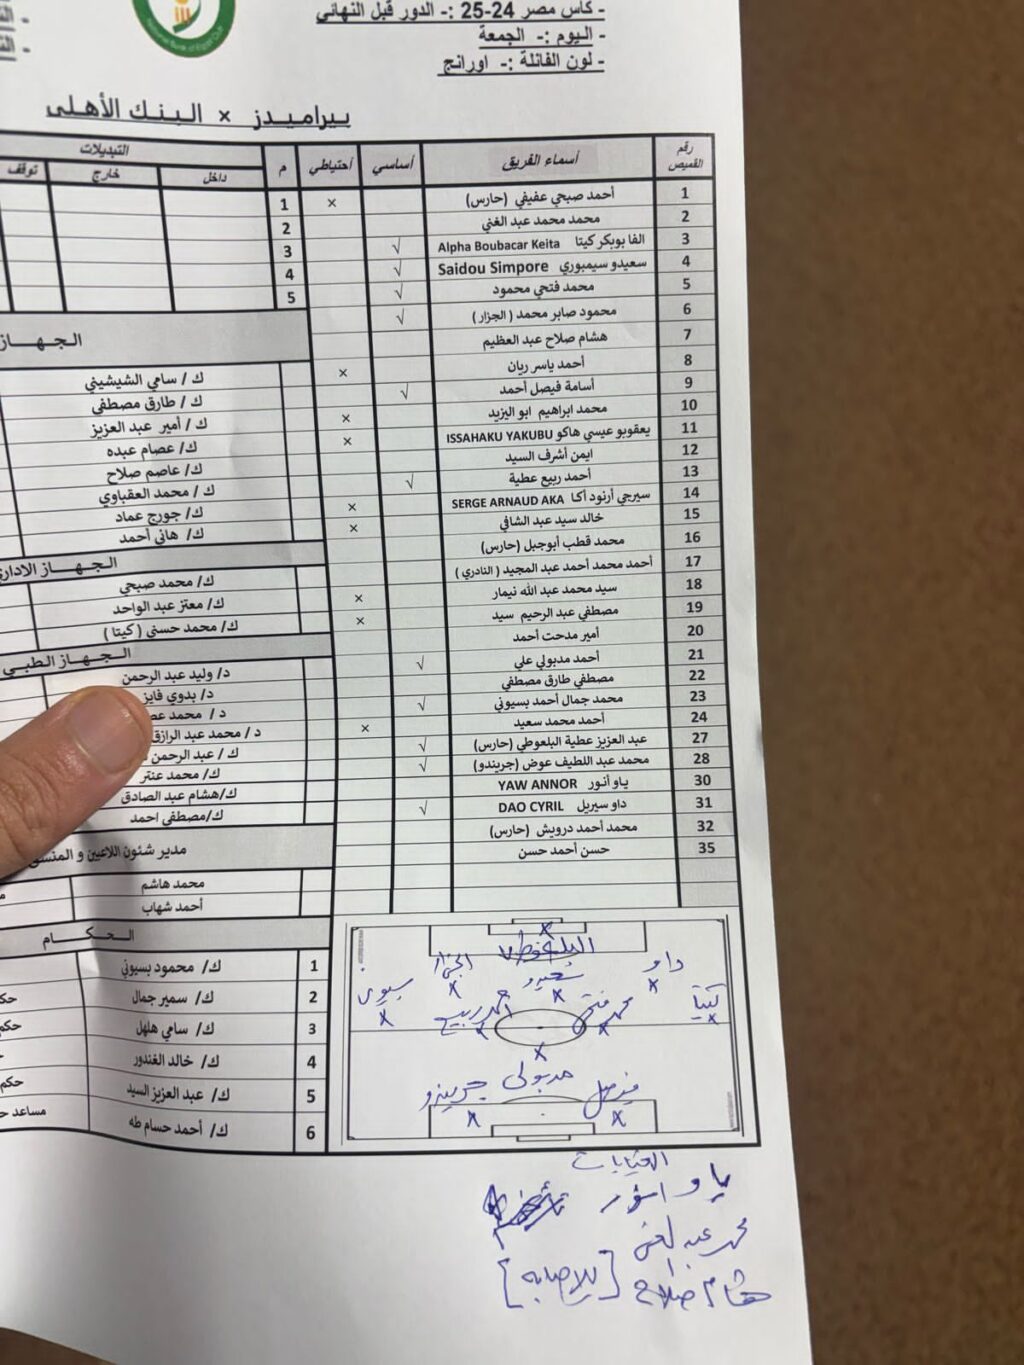 - كاس مصر 24-25 :- الدور قبل النهائي
- اليوم :- الجمعة
- لون الفانلة :- اورانج
بيراميدز × البنك الأهلى
رقم القميص أسماء الفريق أساسي أحتياطي م التبديلات
داخل خارج توقف
1 أحمد صبحي عفيفي (حارس) × 1
2 محمد محمد عبد الغني 2
3 الفا بوبكر كيتا Alpha Boubacar Keita √ 3
4 سعيدو سيمبوري Saidou Simpore √ 4
5 محمد فتحي محمود √ 5
6 محمود صابر محمد ( الجزار ) √
7 هشام صلاح عبد العظيم
8 أحمد ياسر ريان ×
9 أسامة فيصل أحمد √
10 محمد ابراهيم ابو اليزيد ×
11 يعقوبو عيسي هاكو ISSAHAKU YAKUBU ×
12 ايمن أشرف السيد
13 أحمد ربيع عطية √
14 سيرجي أرنود أكا SERGE ARNAUD AKA ×
15 خالد سيد عبد الشافي ×
16 محمد قطب أبوجبل (حارس)
17 أحمد محمد أحمد عبد المجيد ( النادري )
18 سيد محمد عبد الله نيمار ×
19 مصطفي عبد الرحيم سيد ×
20 أمير مدحت أحمد
21 أحمد مدبولي علي √
22 مصطفي طارق مصطفي
23 محمد جمال أحمد بسيوني √
24 أحمد محمد سعيد ×
27 عبد العزيز عطية البلعوطي (حارس) √
28 محمد عبد اللطيف عوض (جريندو) √
30 ياو أنور YAW ANNOR
31 داو سيريل DAO CYRIL √
32 محمد أحمد درويش (حارس)
35 حسن أحمد حسن
الـجـهـاز
ك / سامي الشيشيني
ك / طارق مصطفى
ك / أمير عبد العزيز
ك/ عصام عبده
ك/ عاصم صلاح
ك / محمد العقباوي
ك/ جورج عماد
ك/ هاني أحمد
الـجـهـاز الاداري
ك/ محمد صبحي
ك/ معتز عبد الواحد
ك/ محمد حسنى ( كيتا )
الـجـهـاز الـطـبـي
د/ وليد عبد الرحمن
د/ بدوي فايز
د / محمد
د / محمد عبد الرازق
ك / عبد الرحمن
ك/ محمد عنتر
ك/هشام عبد الصادق
ك/مصطفى احمد
مدير شئون اللاعبين و المنسق
محمد هاشم
أحمد شهاب
الـحـكـام
1 ك/ محمود بسيوني
2 ك/ سمير جمال حكم
3 ك/ سامي هلهل حكم
4 ك/ خالد الغندور
5 ك/ عبد العزيز السيد حكم
6 ك/ أحمد حسام طه مساعد
البلعوطي
داو سعيدو الجزار
كيتا بسيوني
محمد فتحي أحمد ربيع
مدبولى
فيصل جريندو
الغيابات
ياو انور
محمد عبد الغني
هشام صلاح [للاصابه]